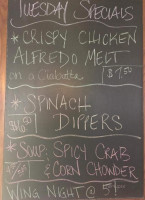 TUESDAY SPECIALS
* CRISPY CHICKEN
ALFREDO MELT
on a Ciabatta
* SPINACH
DIPPERS
* SOUP: SPICY CRAB
& CORN CHOWDER
WING NIGHT @ 5